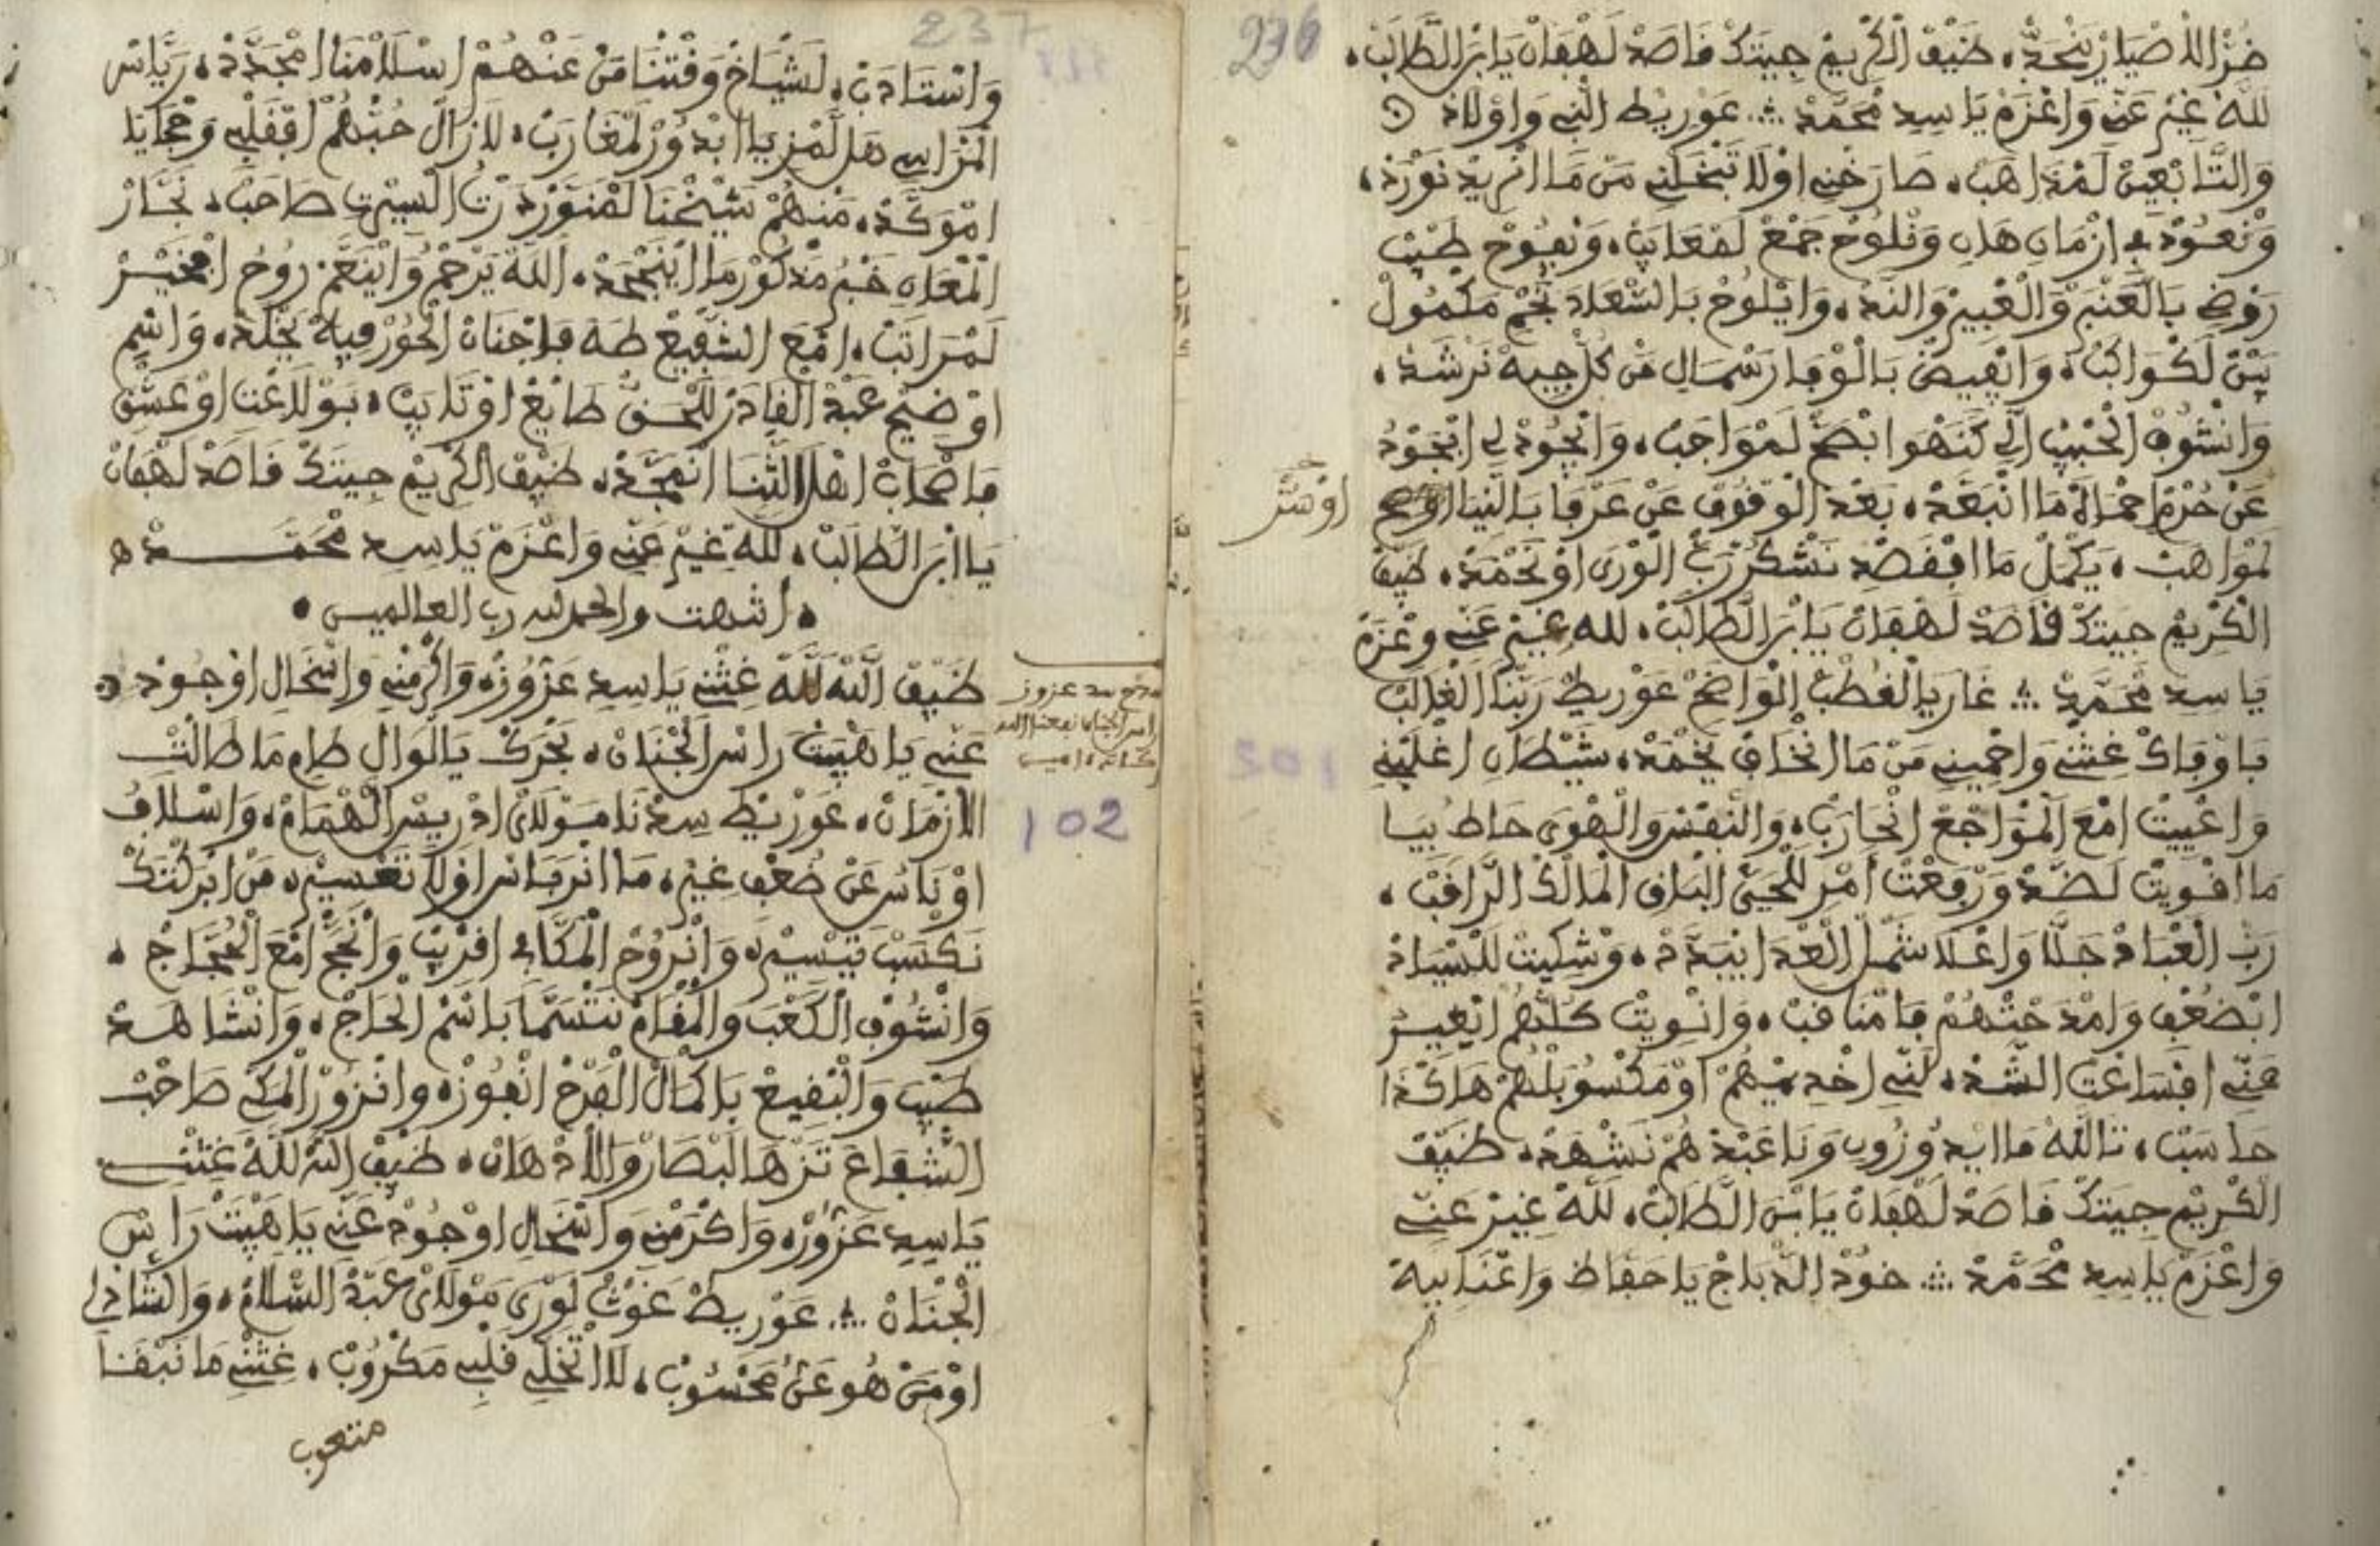 236
ضيف الكريم جيتك فاصد لهفان يا ابن الطالب
لله غير عني واعزم يا سيد محمد ؞ عوريط النبي واولاد
والتابعين لمذاهب، صارخني اولا تبخلني من ما انريد نورد،
ونعود في ازمان هان ونلوح جمع لمعايب، ونفوح طيب
روضي بالعنبر والعبير والند، وايلوح بالسعاد نجم مكمول
بين لكواكب، وانفيض بالوفا رسمالي من كل جيه نرشد،
وانشوف الحبيب الي كنهوا ابصح لمواجب، وانجود لي ابجود
عن حرم احماه ما انبعد، بعد الوقوف عن عرفا بالنيا
لمواهب، يكمل ما افقصد نشكر رب الورى او نحمد، ضيف
الكريم جيتك فاصد لهفان يا ابن الطالب، لله غير عني وعزم
يا سيد محمد ؞ غار يا الغطب الواضح عوريط ربنا الغالب
باوفاك غثني واحميني من ما انخاف يخمد، شيطان اغلبني
واعييت امع المواجع انحارب، والنفس والهوى حاط بيا
ما اقويت لضد ورفعت امر للحي الباقي المالك الرافب،
رب العباد جلا واعلا شمل العدا ايبدد، وشكيت للسياد
ابضعف وامدحتهم فامنافب، وانويت كلهم ايغير
عني افساعت الشد، لني اخديمهم او مكسوبلهم هاكذا
حاسب، تالله ما ايدوزوني وناعبدهم نشهد، ضيف
الكريم جيتك فاصد لهفان يا ابن الطالب، لله غير عني
واعزم يا سيد محمد ؞ خود الدباج يا حفاظ واغنا بيه
237
واستادن، لشياخ وفتنا من عنهم اسلامنا امجدد، رياس
المراسي هل لمزيا ابدور لمغارب، لازال حبهم افقلبي
اموكد، منهم شيخنا لمنور السيرت صاحب، نجار
المعان خبر مدكور ما اينجحد، الله يرحم واينعم روح
لمراتب، امع الشفيع طه فاجنان الحور فيه يخلد، واسم
اوضيح عبد القادر للحق طايع او تايب، بولاعت او عشق
فاصحاب اهل الثنا انمجد، ضيف الكريم جيتك فاصد لهفان
يا ابن الطالب، لله غير عني واعزم يا سيد محمد
انتهت والحمد لله رب العالمين
مدح سيد عزوز
راس الجنان نفعنا الله
ضيف الله لله غثني يا سيد عزوز، واكرمني واسخالي او جود
عني يا هيبت راس الجنان، بحرك يا الوال طام ما طالت
الازمان، عوريط سيدنا مولاي ادريس الهمام، واسلاف
اوناس عن ضعف غير، ما انرفاس اولا تعسير، من ابركتك
نكسب تيسير، وانروح المكاني افريب وانحج امع الحجاج،
وانشوف الكعب والمقام نتسما باسم الحاج، وانشاهد
طيب والبقيع باكمال الفرح انفوز، وانزور المكي صاحب
الشفاع تزها لبصار والادهان، ضيف الله لله غثني
يا سيد عزوز، واكرمني واسخالي او جود عني يا هيبت راس
الجنان ؞ عوريط غوث لورى مولاي عبد السلام، والشادلي
اومن هو عن محسوب، لا اتخلي قلبي مكروب، غثني ما نبقا
متعوب
102